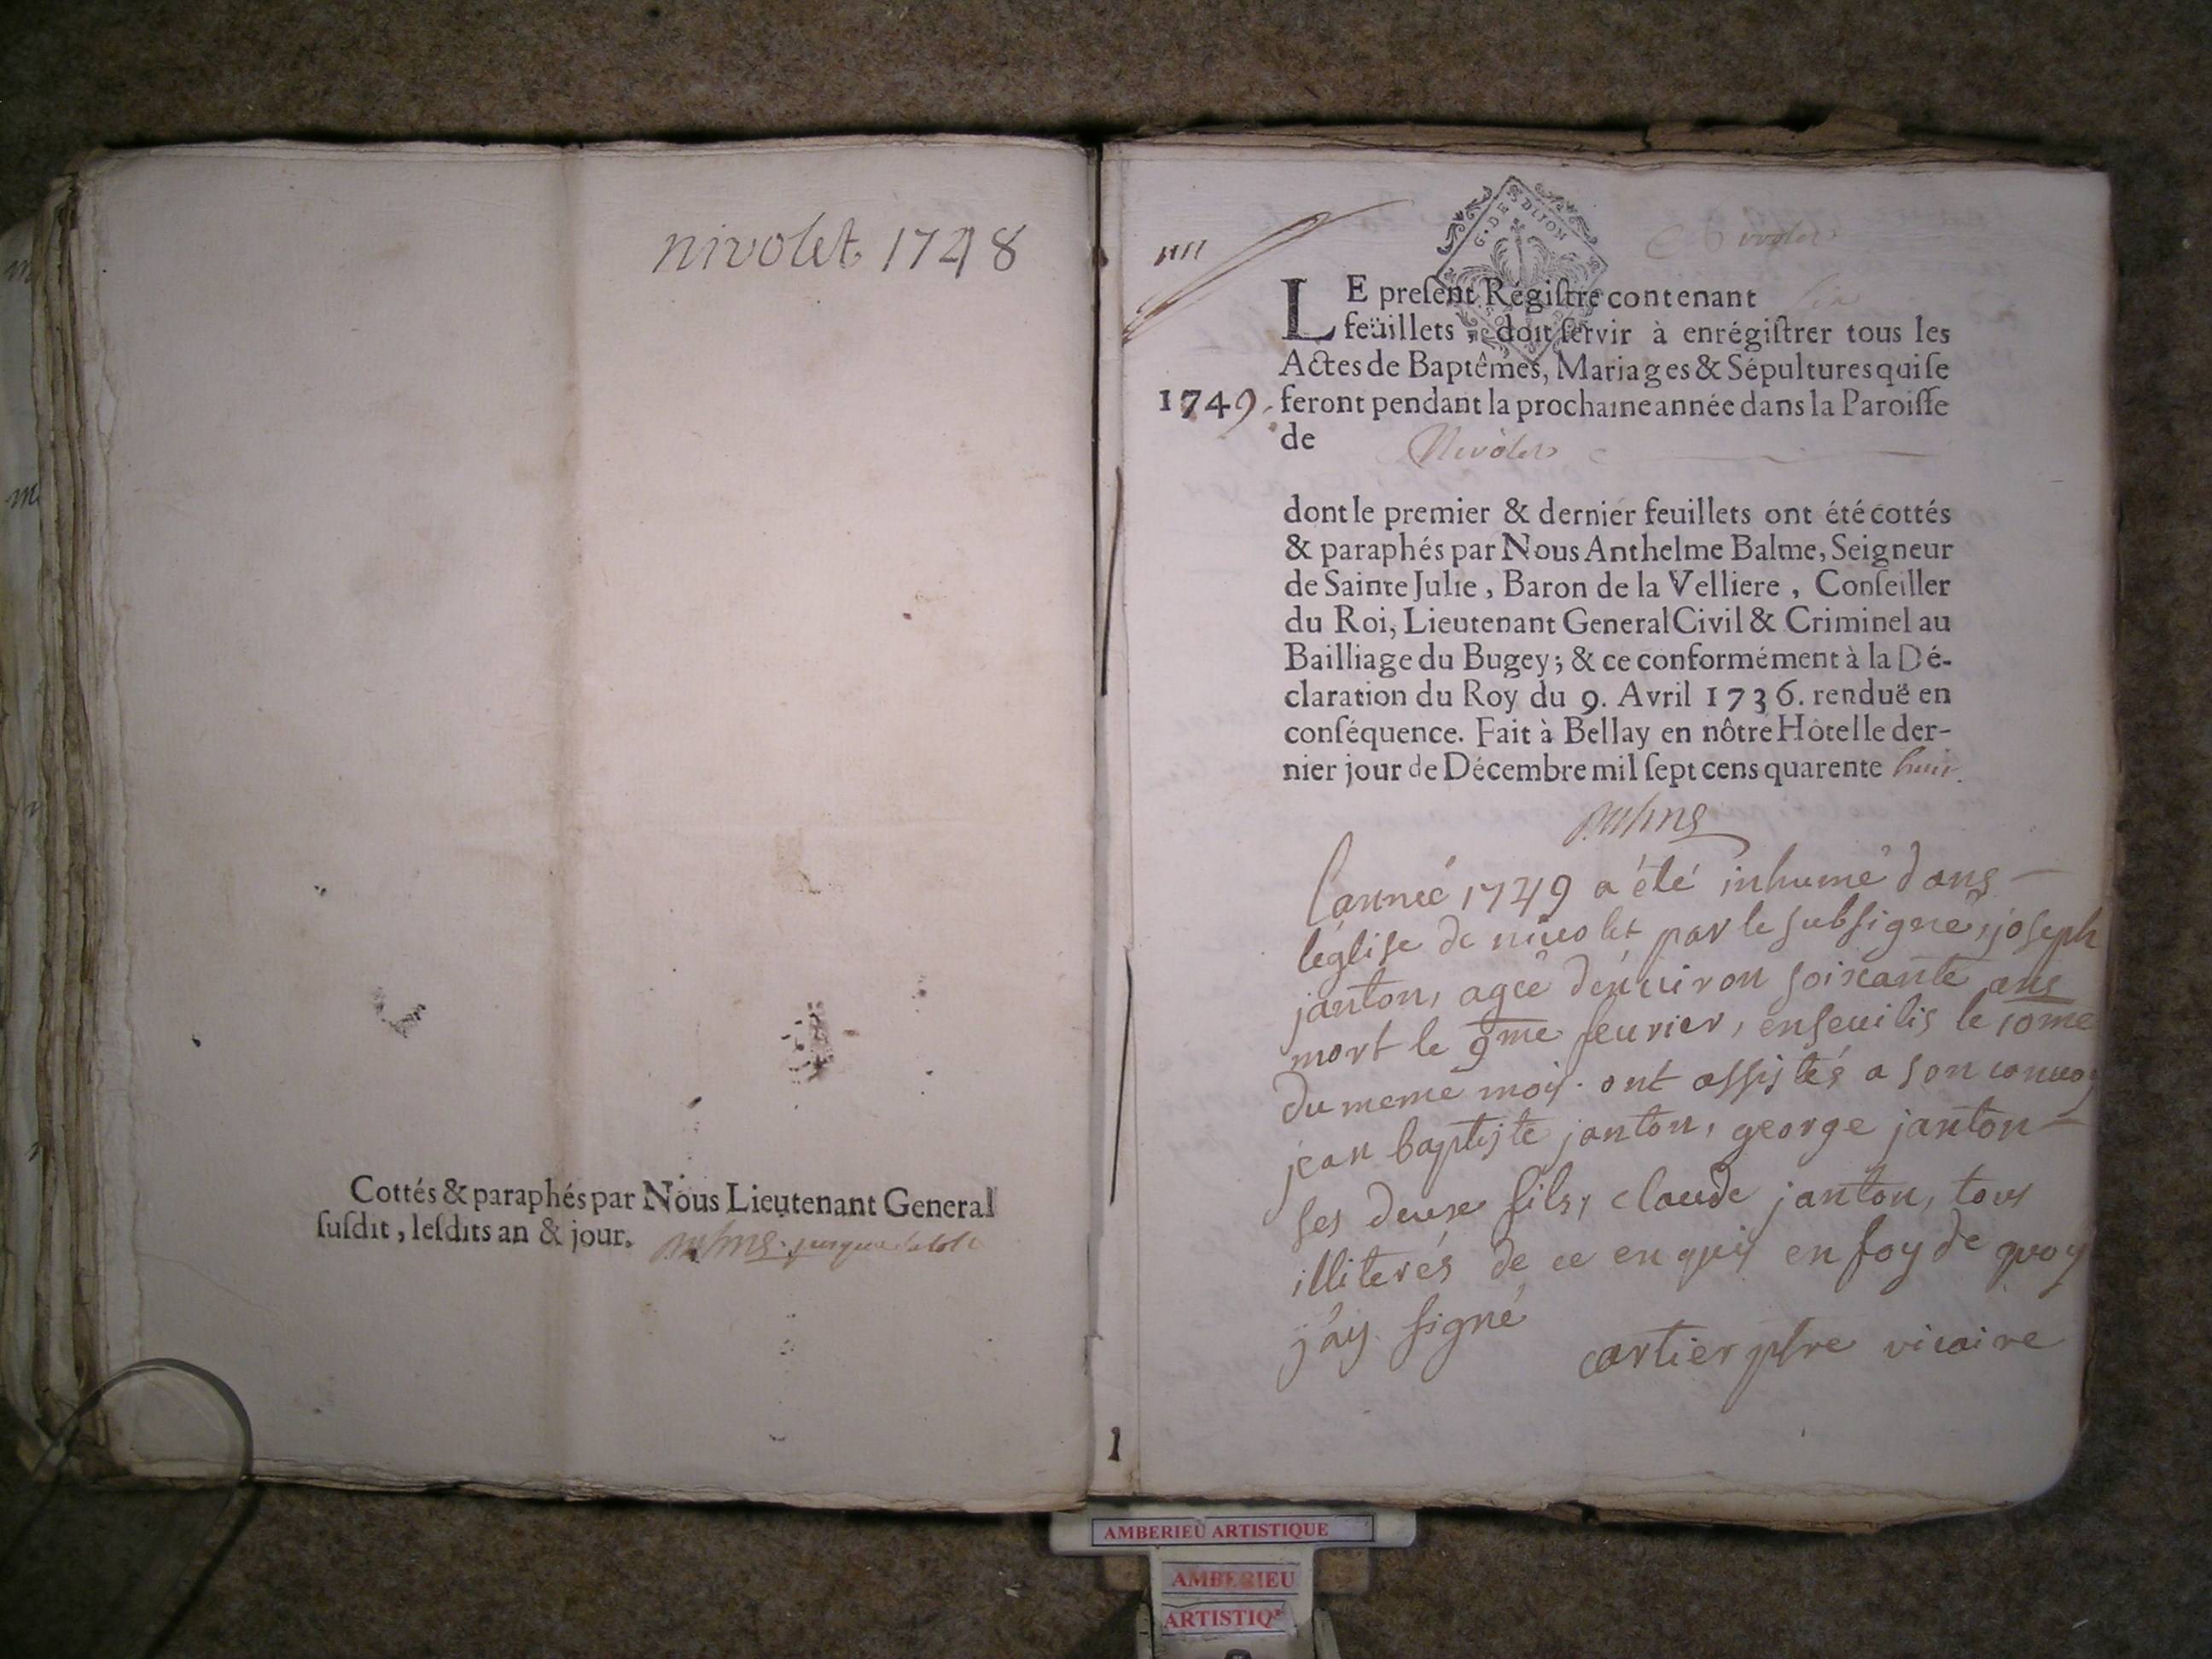 nivolet 1748
Cottés & paraphés par Nous Lieutenant General
ſuſdit, leſdits an & jour.
G. DE DIJON
LE preſent Régiſtre contenant
feüillets, doit ſervir à enrégiſtrer tous les
Actes de Baptêmes, Mariages & Sépultures qui ſe
1749. feront pendant la prochaine année dans la Paroiſſe
de Nivolet
dont le premier & dernier feuillets ont été cottés
& paraphés par Nous Anthelme Balme, Seigneur
de Sainte Julie, Baron de la Velliere, Conſeiller
du Roi, Lieutenant General Civil & Criminel au
Bailliage du Bugey; & ce conformément à la Dé-
claration du Roy du 9. Avril 1736. renduë en
conſéquence. Fait à Bellay en nôtre Hôtel le der-
nier jour de Décembre mil ſept cens quarente huit.
l'année 1749 a été inhumé dans
l'église de nivolet par le subsigné, joseph
janton, agée d'enuiron soixante ans
mort le 9me feurier, enseuilis le 10me
du meme mois. ont assistés a son conuoy
jean baptiste janton, george janton
ses deux fils, claude janton, tous
illiterés de ce enquis en foy de quoy
j'ay signé
cartier ptre vicaire
1
AMBERIEU ARTISTIQUE
AMBERIEU
ARTISTIQ